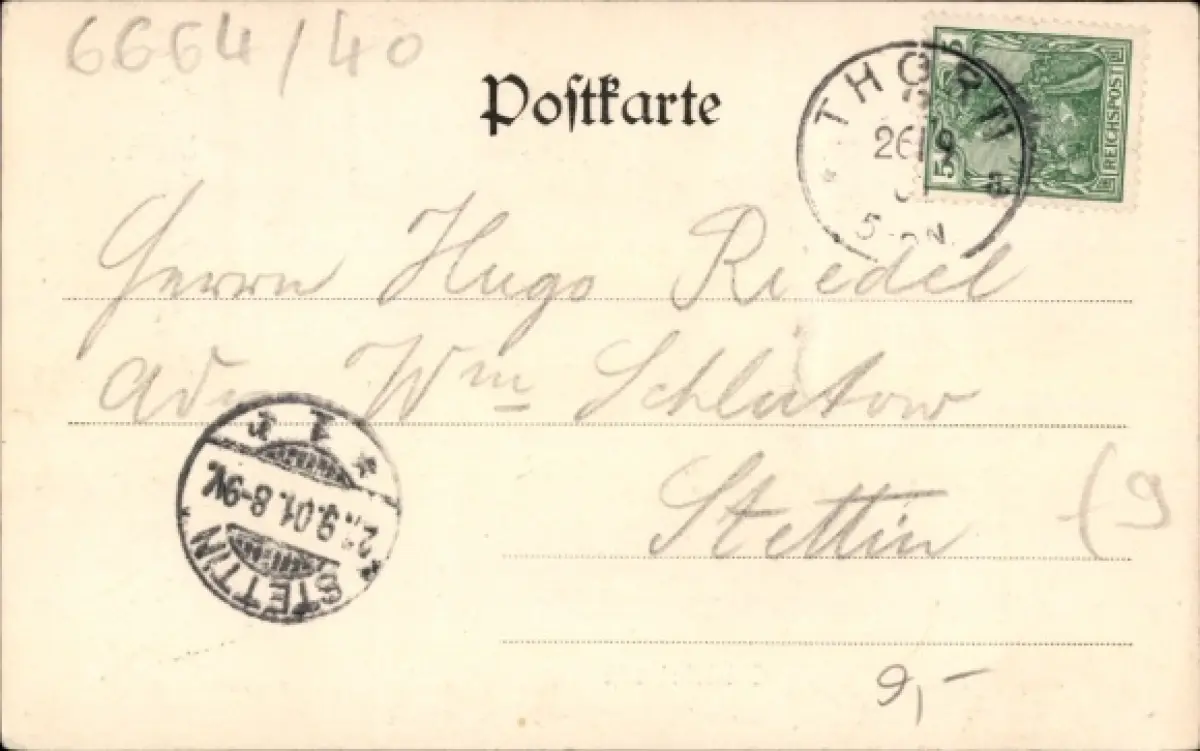 6664/40
Postkarte
THORN
26 9
5-
2
5
5
REICHSPOST
Herrn Hugo Riedel
Adr Wm Schlutow
Stettin
(9
STETTIN
9.01.8-9V.
1
9,-